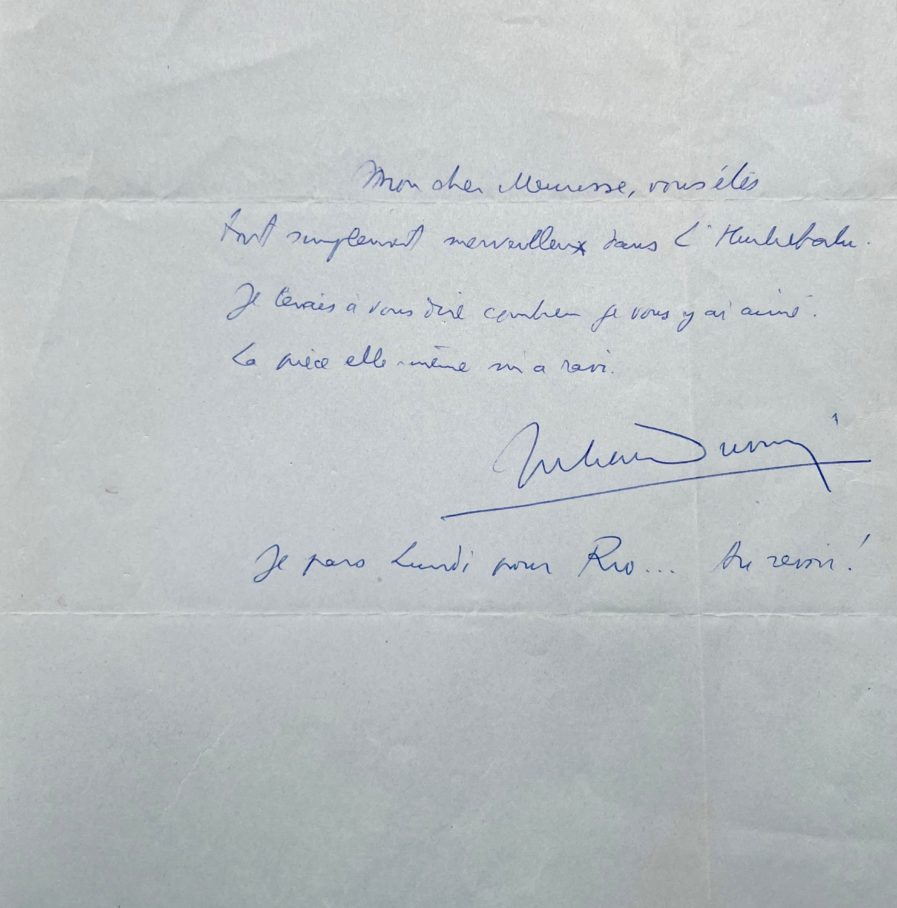 Mon cher Meurisse, vous êtes
tout simplement merveilleux dans L'Hurluberlu.
Je tenais à vous dire combien je vous y ai aimé.
La pièce elle-même m'a ravi.
Julien Duvivier
Je pars Lundi pour Rio... Au revoir!